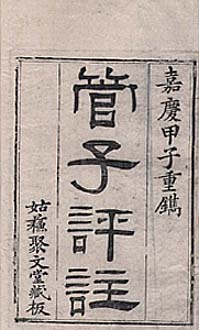 嘉慶甲子重鐫
管子評註
姑蘇聚文堂藏板